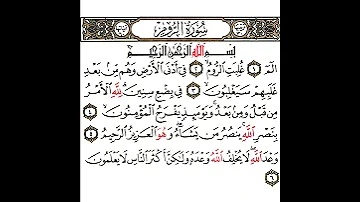 سُورَةُ الرُّومِ
بِسْمِ اللَّهِ الرَّحْمَٰنِ الرَّحِيمِ
الٓمٓ ١ غُلِبَتِ الرُّومُ ٢ فِي أَدْنَى الْأَرْضِ وَهُم مِّن بَعْدِ
غَلَبِهِمْ سَيَغْلِبُونَ ٣ فِي بِضْعِ سِنِينَ لِلَّهِ الْأَمْرُ
مِن قَبْلُ وَمِن بَعْدُ وَيَوْمَئِذٍ يَفْرَحُ الْمُؤْمِنُونَ ٤
بِنَصْرِ اللَّهِ يَنصُرُ مَن يَشَاءُ وَهُوَ الْعَزِيزُ الرَّحِيمُ ٥
وَعْدَ اللَّهِ لَا يُخْلِفُ اللَّهُ وَعْدَهُ وَلَٰكِنَّ أَكْثَرَ النَّاسِ لَا يَعْلَمُونَ
٦